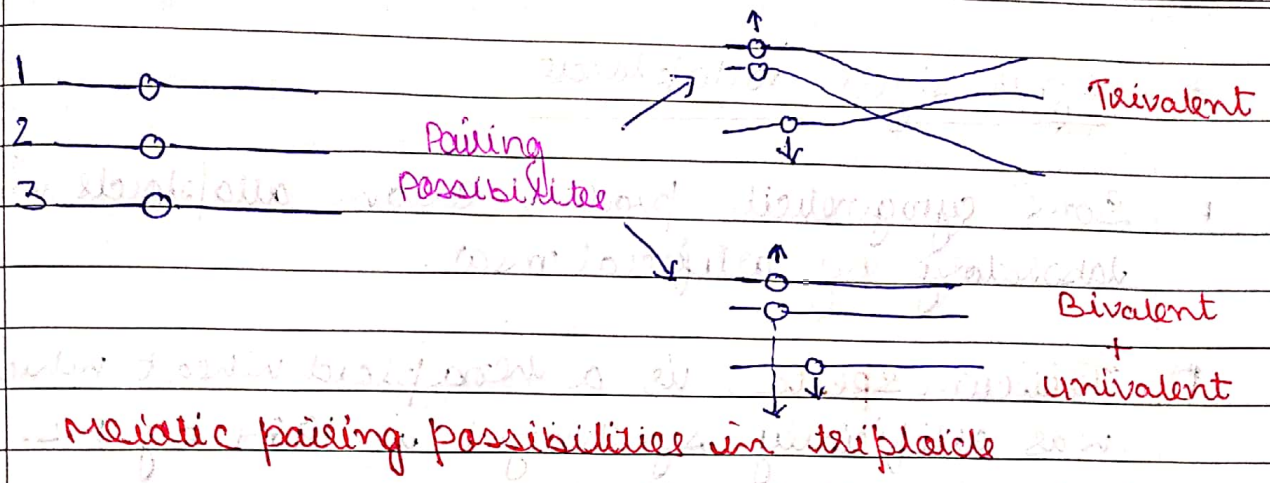 1
2
3
Pairing
Possibilites
Trivalent
Bivalent
+
Univalent
Meiotic pairing possibilities in triploids